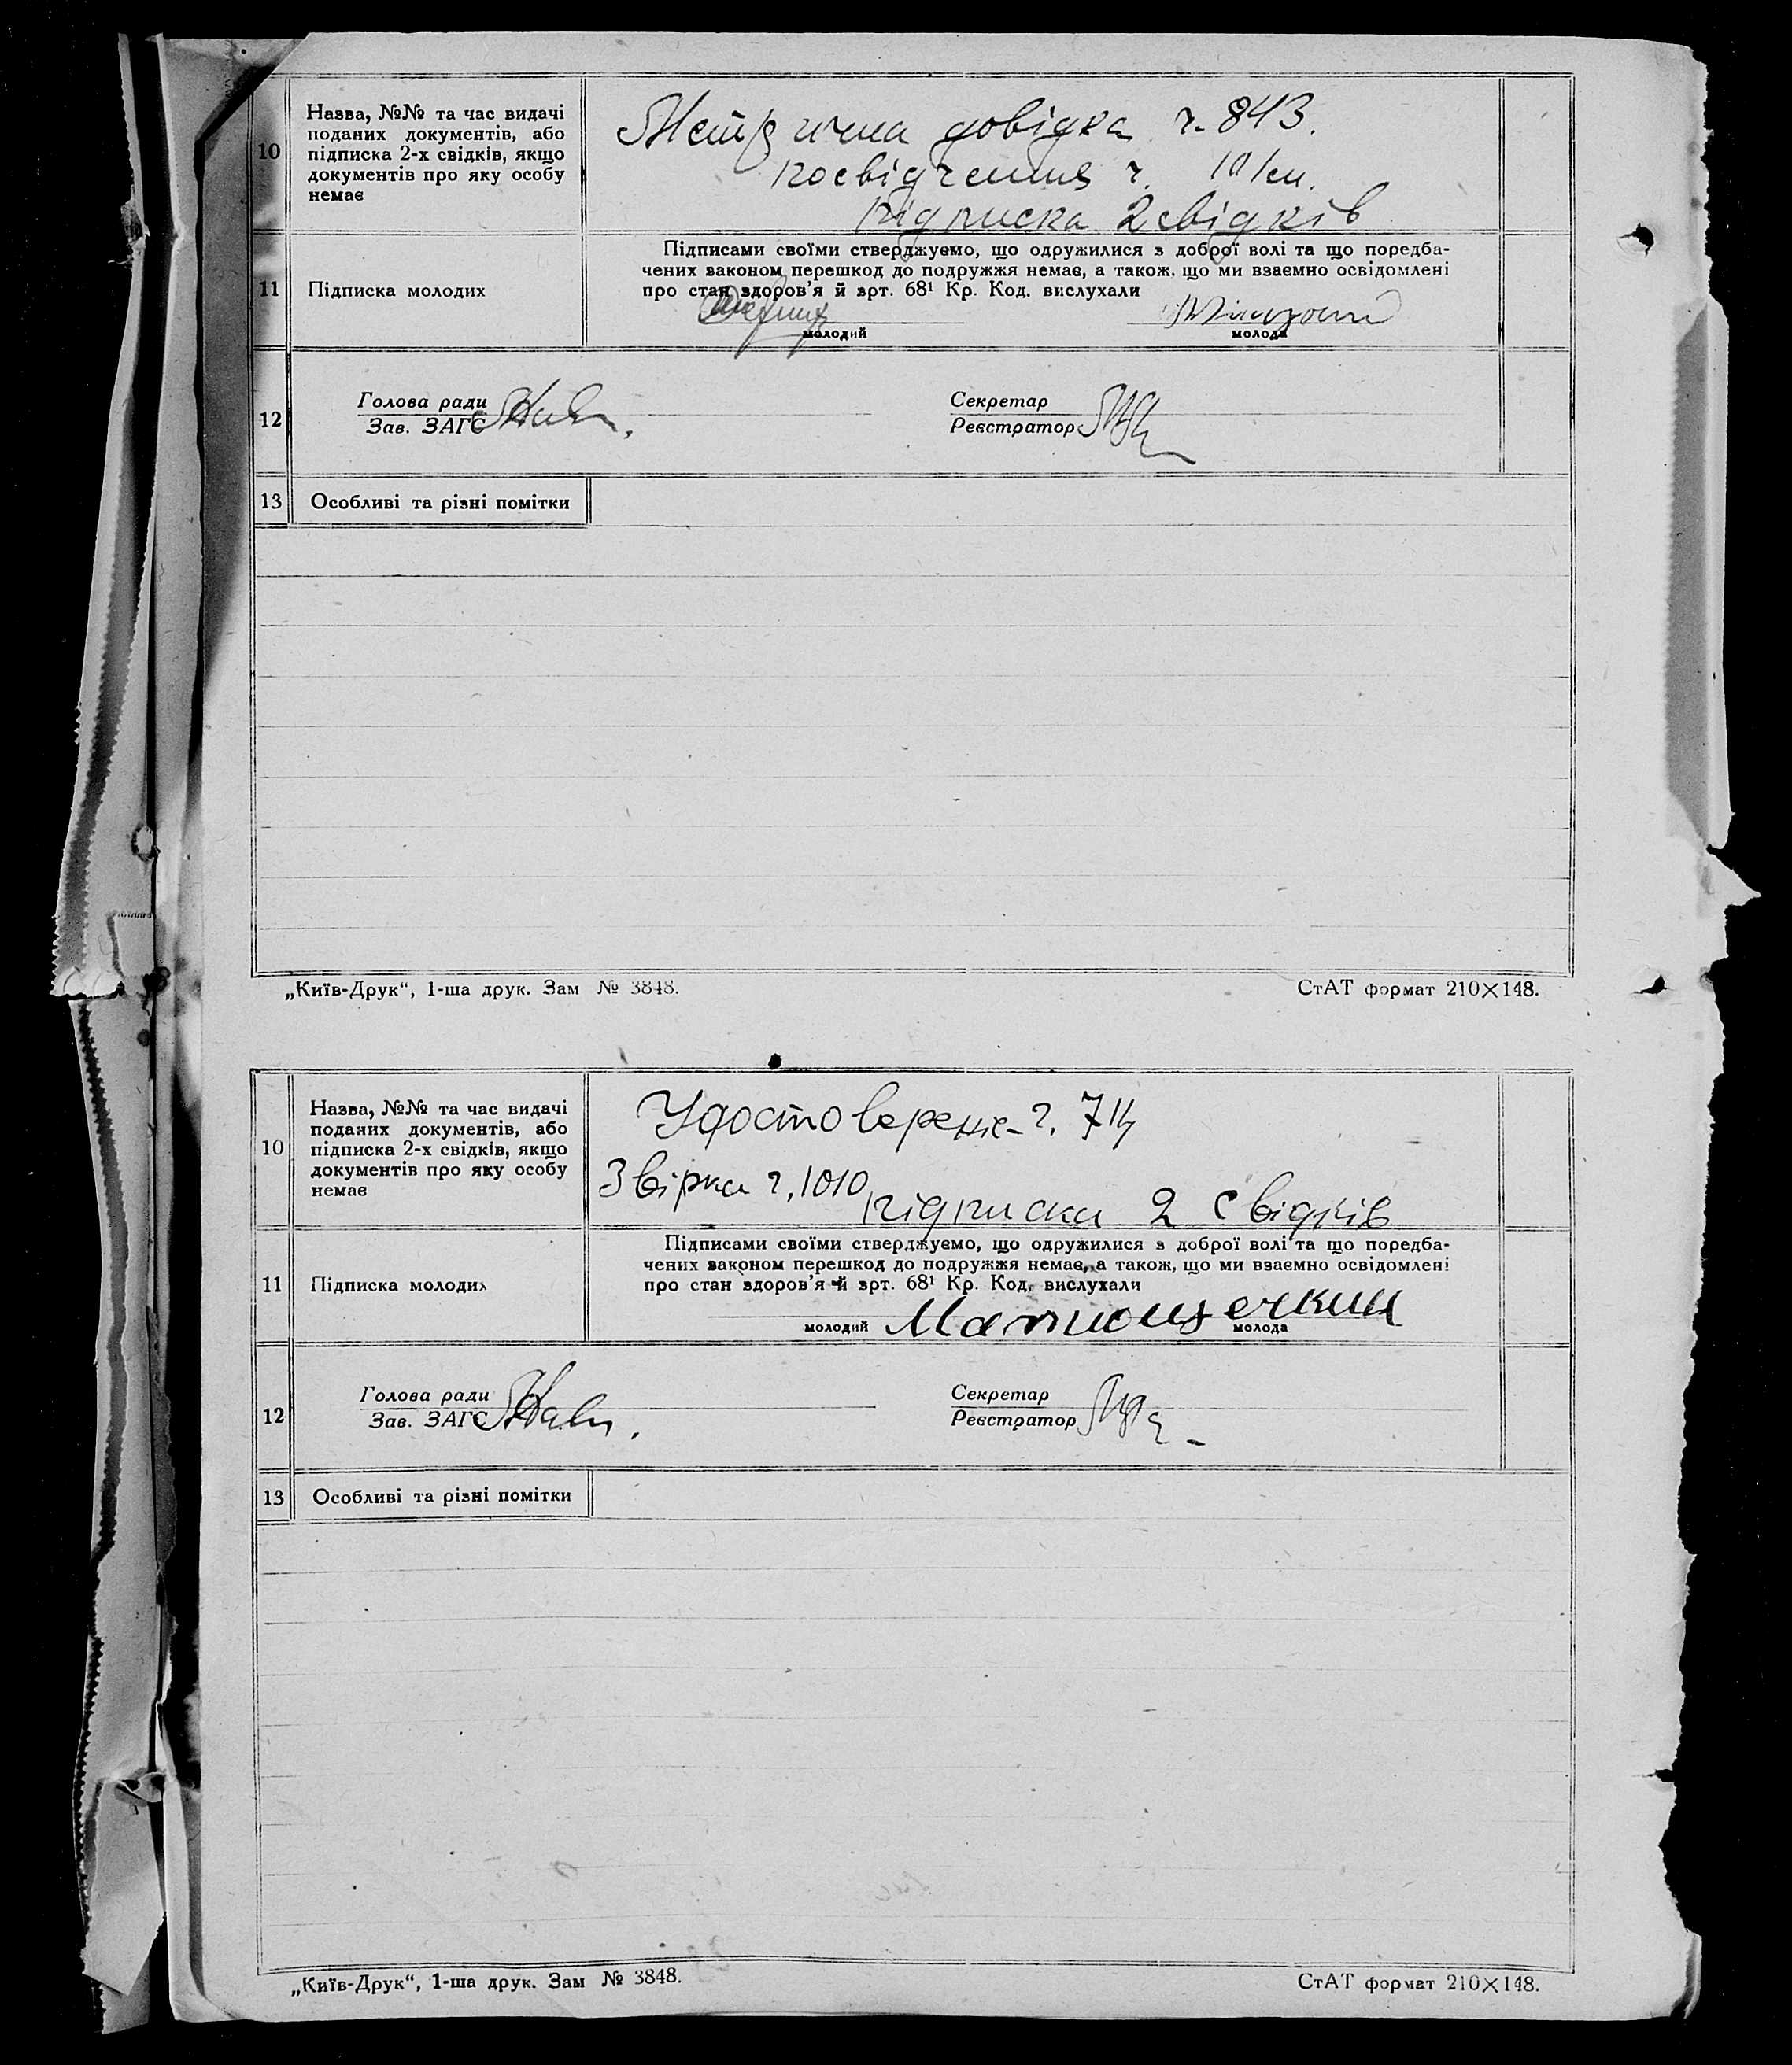 10
Назва, №№ та час видачі
поданих документів, або
підписка 2-х свідків, якщо
документів про яку особу
немає
Метрична довідка ч. 843.
посвідчення ч.
підписка 2 свідків
11
Підписка молодих
Підписами своїми стверджуємо, що одружилися з доброї волі та що поредба-
чених законом перешкод до подружжя немає, а також, що ми взаємно освідомлені
про стан здоров'я й зрт. 68¹ Кр. Код. вислухали
молодий
молода
12
Голова ради
Зав. ЗАГС
Секретар
Реєстратор
13
Особливі та різні помітки
„Київ-Друк“, 1-ша друк. Зам № 3848.
СтАТ формат 210×148.
10
Назва, №№ та час видачі
поданих документів, або
підписка 2-х свідків, якщо
документів про яку особу
немає
Удостоверение ч.
Звірка ч. 1010
підписка 2 свідків
11
Підписка молодих
Підписами своїми стверджуємо, що одружилися з доброї волі та що поредба-
чених законом перешкод до подружжя немає, а також, що ми взаємно освідомлені
про стан здоров'я й зрт. 68¹ Кр. Код. вислухали
молодий
молода
12
Голова ради
Зав. ЗАГС
Секретар
Реєстратор
13
Особливі та різні помітки
„Київ-Друк“, 1-ша друк. Зам № 3848.
СтАТ формат 210×148.